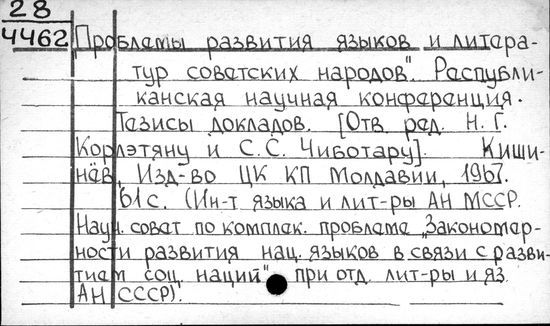 28
4462
"Проблемы развития языков и литера-
тур советских народов". Республи-
канская научная конференция.
Тезисы докладов. [Отв. ред. Н. Г.
Корлэтяну и С. С. Чиботару] Киши-
нёв, Изд-во ЦК КП Молдавии, 1967.
61 с. (Ин-т языка и лит-ры АН МССР.
Науч. совет по комплек. проблеме „Закономер-
ности развития нац. языков в связи с разви-
тием соц. наций" при отд. лит-ры и яз.
АН СССР).